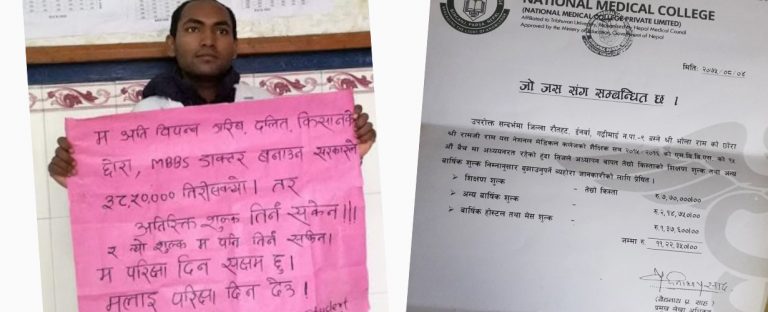 म अति विपन्न गरिब, दलित, किसानको
छोरा, MBBS डाक्टर बनाउन सरकारले
३८,५०,००० तिरीसक्यो। तर
अतिरिक्त शुल्क तिर्न सकेन।।।
र यो शुल्क म पनि तिर्न सक्तिन।
म परिक्षा दिन सक्षम छु।
मलाई परिक्षा दिन देउ।
student
NATIONAL MEDICAL COLLEGE
(NATIONAL MEDICAL COLLEGE PRIVATE LIMITED)
Affiliated to Tribhuvan University, Nepal Medical Council
Approved by the Ministry of Education, Government of Nepal
मिति: २०७५/०८/०४
जो जस संग सम्बन्धित छ ।
उपरोक्त सन्दर्भमा जिल्ला रौतहट, ईनर्वा, गढीमाई न.पा.-१ बस्ने श्री भोला राम को छोरा
श्री रामजी राम यस नेशनल मेडिकल कलेजको शैक्षिक सत्र २०१५-२०१६ को एम.बि.बि.एस को १५
औं ब्याच मा अध्ययनरत रहेको हुँदा निजले अध्यापन बापत तेश्रो किस्ताको शिक्षण शुल्क तथा अन्य
बार्षिक शुल्क निम्नानुसार बुझाउनुपर्ने व्यहोरा जानकारीको लागि प्रेषित ।
शिक्षण शुल्क - तेश्रो किस्ता रु.७,७०,०००।००
अन्य बार्षिक शुल्क रु.२,१४,७५०।००
बार्षिक होस्टल तथा मेस शुल्क रु.१,३७,६००।००
जम्मा रु ११,२२,३५०।००